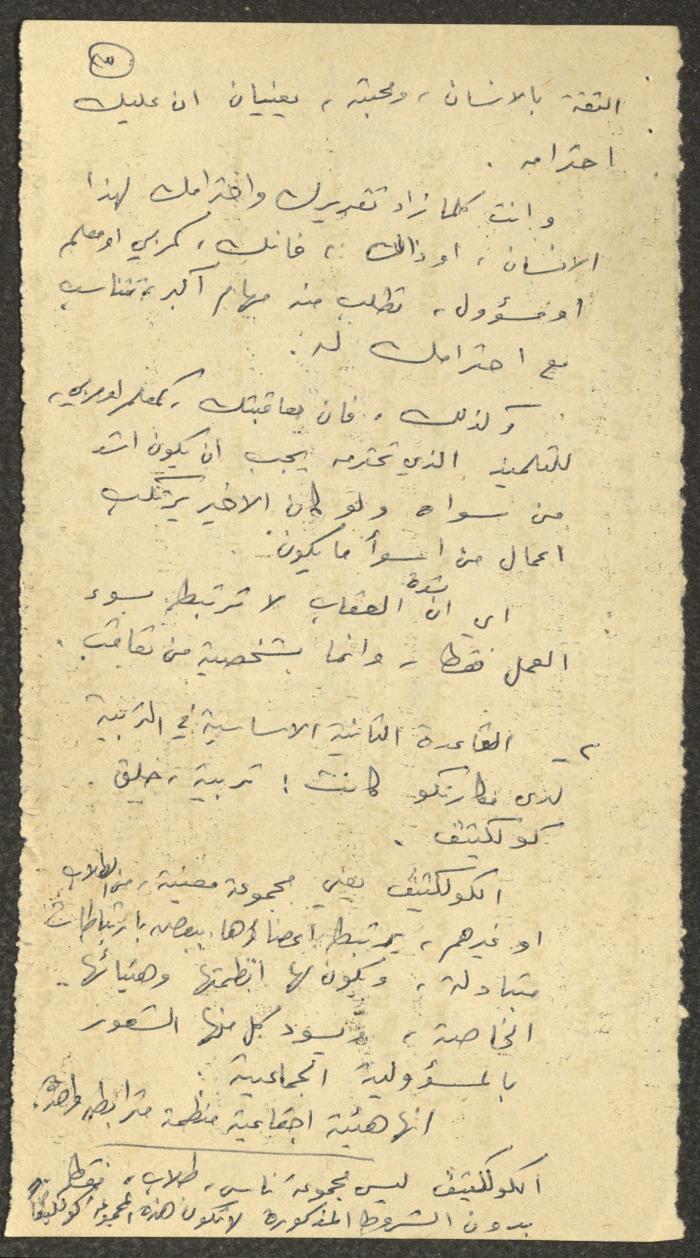 ٣
الثقة بالانسان، ومحبته، يعنيان ان عليك
احترامه.
وانت كلما زاد تقديرك واحترامك لهذا
الانسان، او ذاك، فانك، كمربي او معلم
او مسؤول، تطلب منه مهام أكبر تتناسب
مع احترامك له.
وكذلك، فان معاقبتك، كمعلم او مربي،
للتلميذ الذي تحترمه يجب ان يكون اشد
من سواه ولو كان الاخير يرتكب
اعمال من اسوأ ما يكون.
اي ان شدة العقاب لا ترتبط بسوء
العمل فقط، وانما بشخصية من تعاقب.
٢ - القاعدة الثانية الاساسية في التربية
لدى مكارنكو كانت: تربية، خلق
كولكتيف.
الكولكتيف يعني مجموعة معينة، من الطلاب
او غيرهم، يرتبط اعضاؤها ببعض بارتباطات
متبادلة، ويكون لها انظمتها وهيئاتها
الخاصة، ويسود كل منها الشعور
بالمسؤولية الجماعية.
انها هيئة اجتماعية منظمة مترابطة واحدة.
الكولكتيف ليس مجموعة ناس، طلاب، فقط
بدون الشروط المذكورة لا تكون هذه المجموعة كولكتيفا